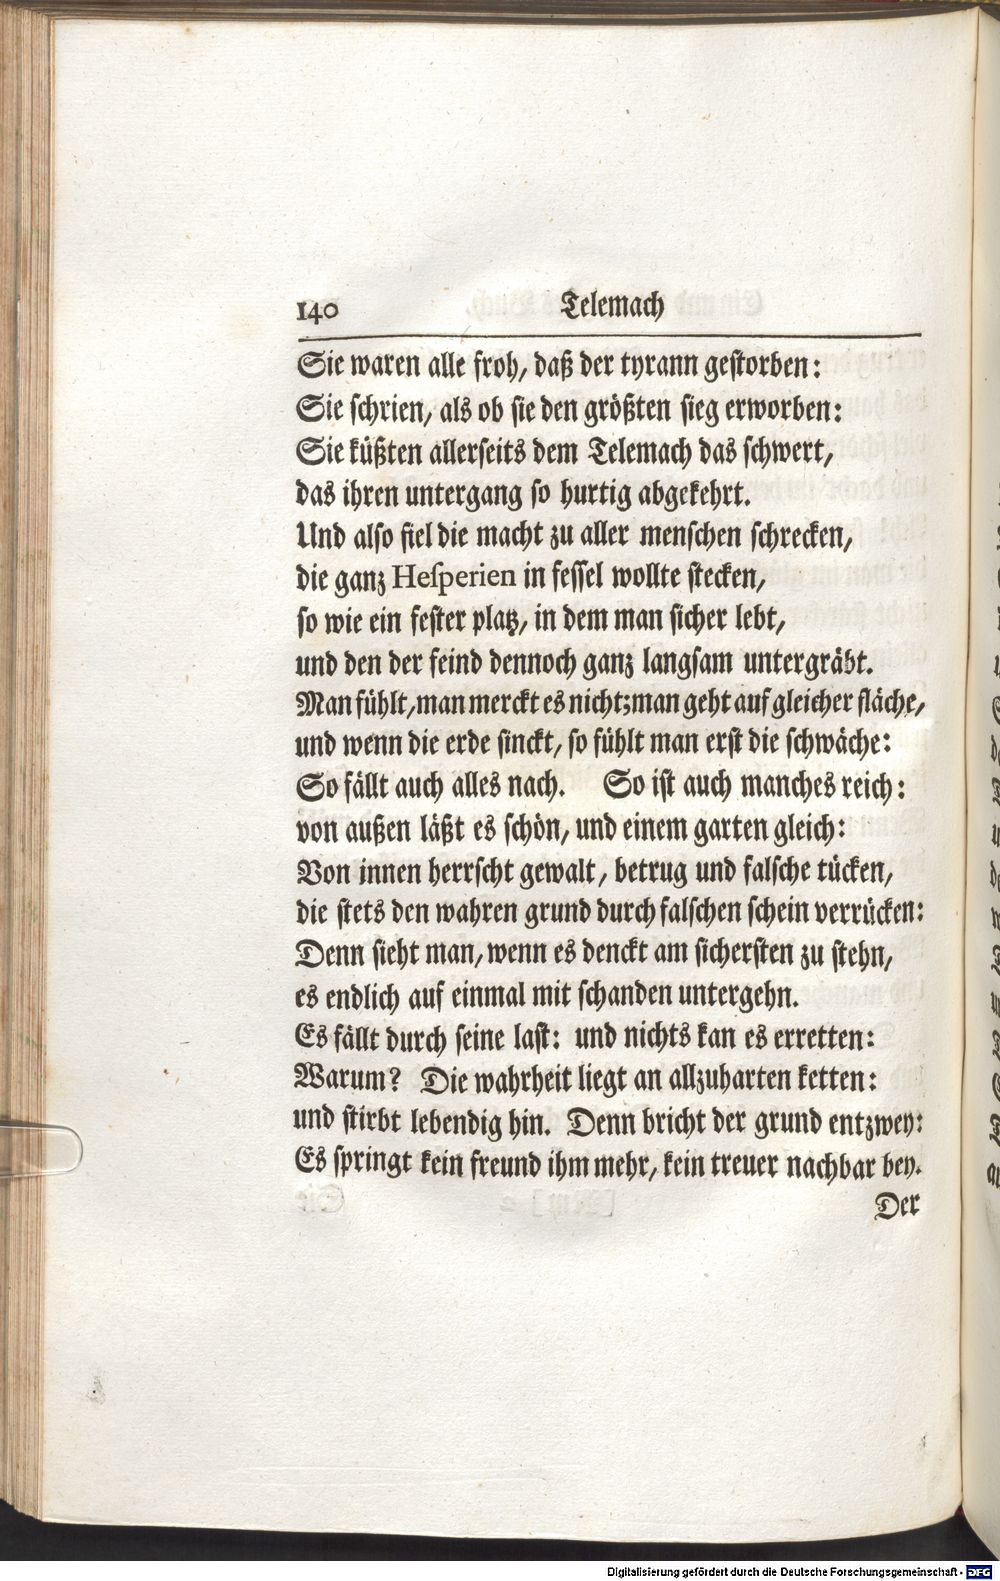 140 Telemach
Sie waren alle froh, daß der tyrann gestorben:
Sie schrien, als ob sie den größten sieg erworben:
Sie küßten allerseits dem Telemach das schwert,
das ihren untergang so hurtig abgekehrt.
Und also fiel die macht zu aller menschen schrecken,
die ganz Hesperien in fessel wollte stecken,
so wie ein fester platz, in dem man sicher lebt,
und den der feind dennoch ganz langsam untergräbt.
Man fühlt, man merckt es nicht; man geht auf gleicher fläche,
und wenn die erde sinckt, so fühlt man erst die schwäche:
So fällt auch alles nach. So ist auch manches reich:
von außen läßt es schön, und einem garten gleich:
Von innen herrscht gewalt, betrug und falsche tücken,
die stets den wahren grund durch falschen schein verrücken:
Denn sieht man, wenn es denckt am sichersten zu stehn,
es endlich auf einmal mit schanden untergehn.
Es fällt durch seine last: und nichts kan es erretten:
Warum? Die wahrheit liegt an allzuharten ketten:
und stirbt lebendig hin. Denn bricht der grund entzwey:
Es springt kein freund ihm mehr, kein treuer nachbar bey.
Der
Digitalisierung gefördert durch die Deutsche Forschungsgemeinschaft - DFG